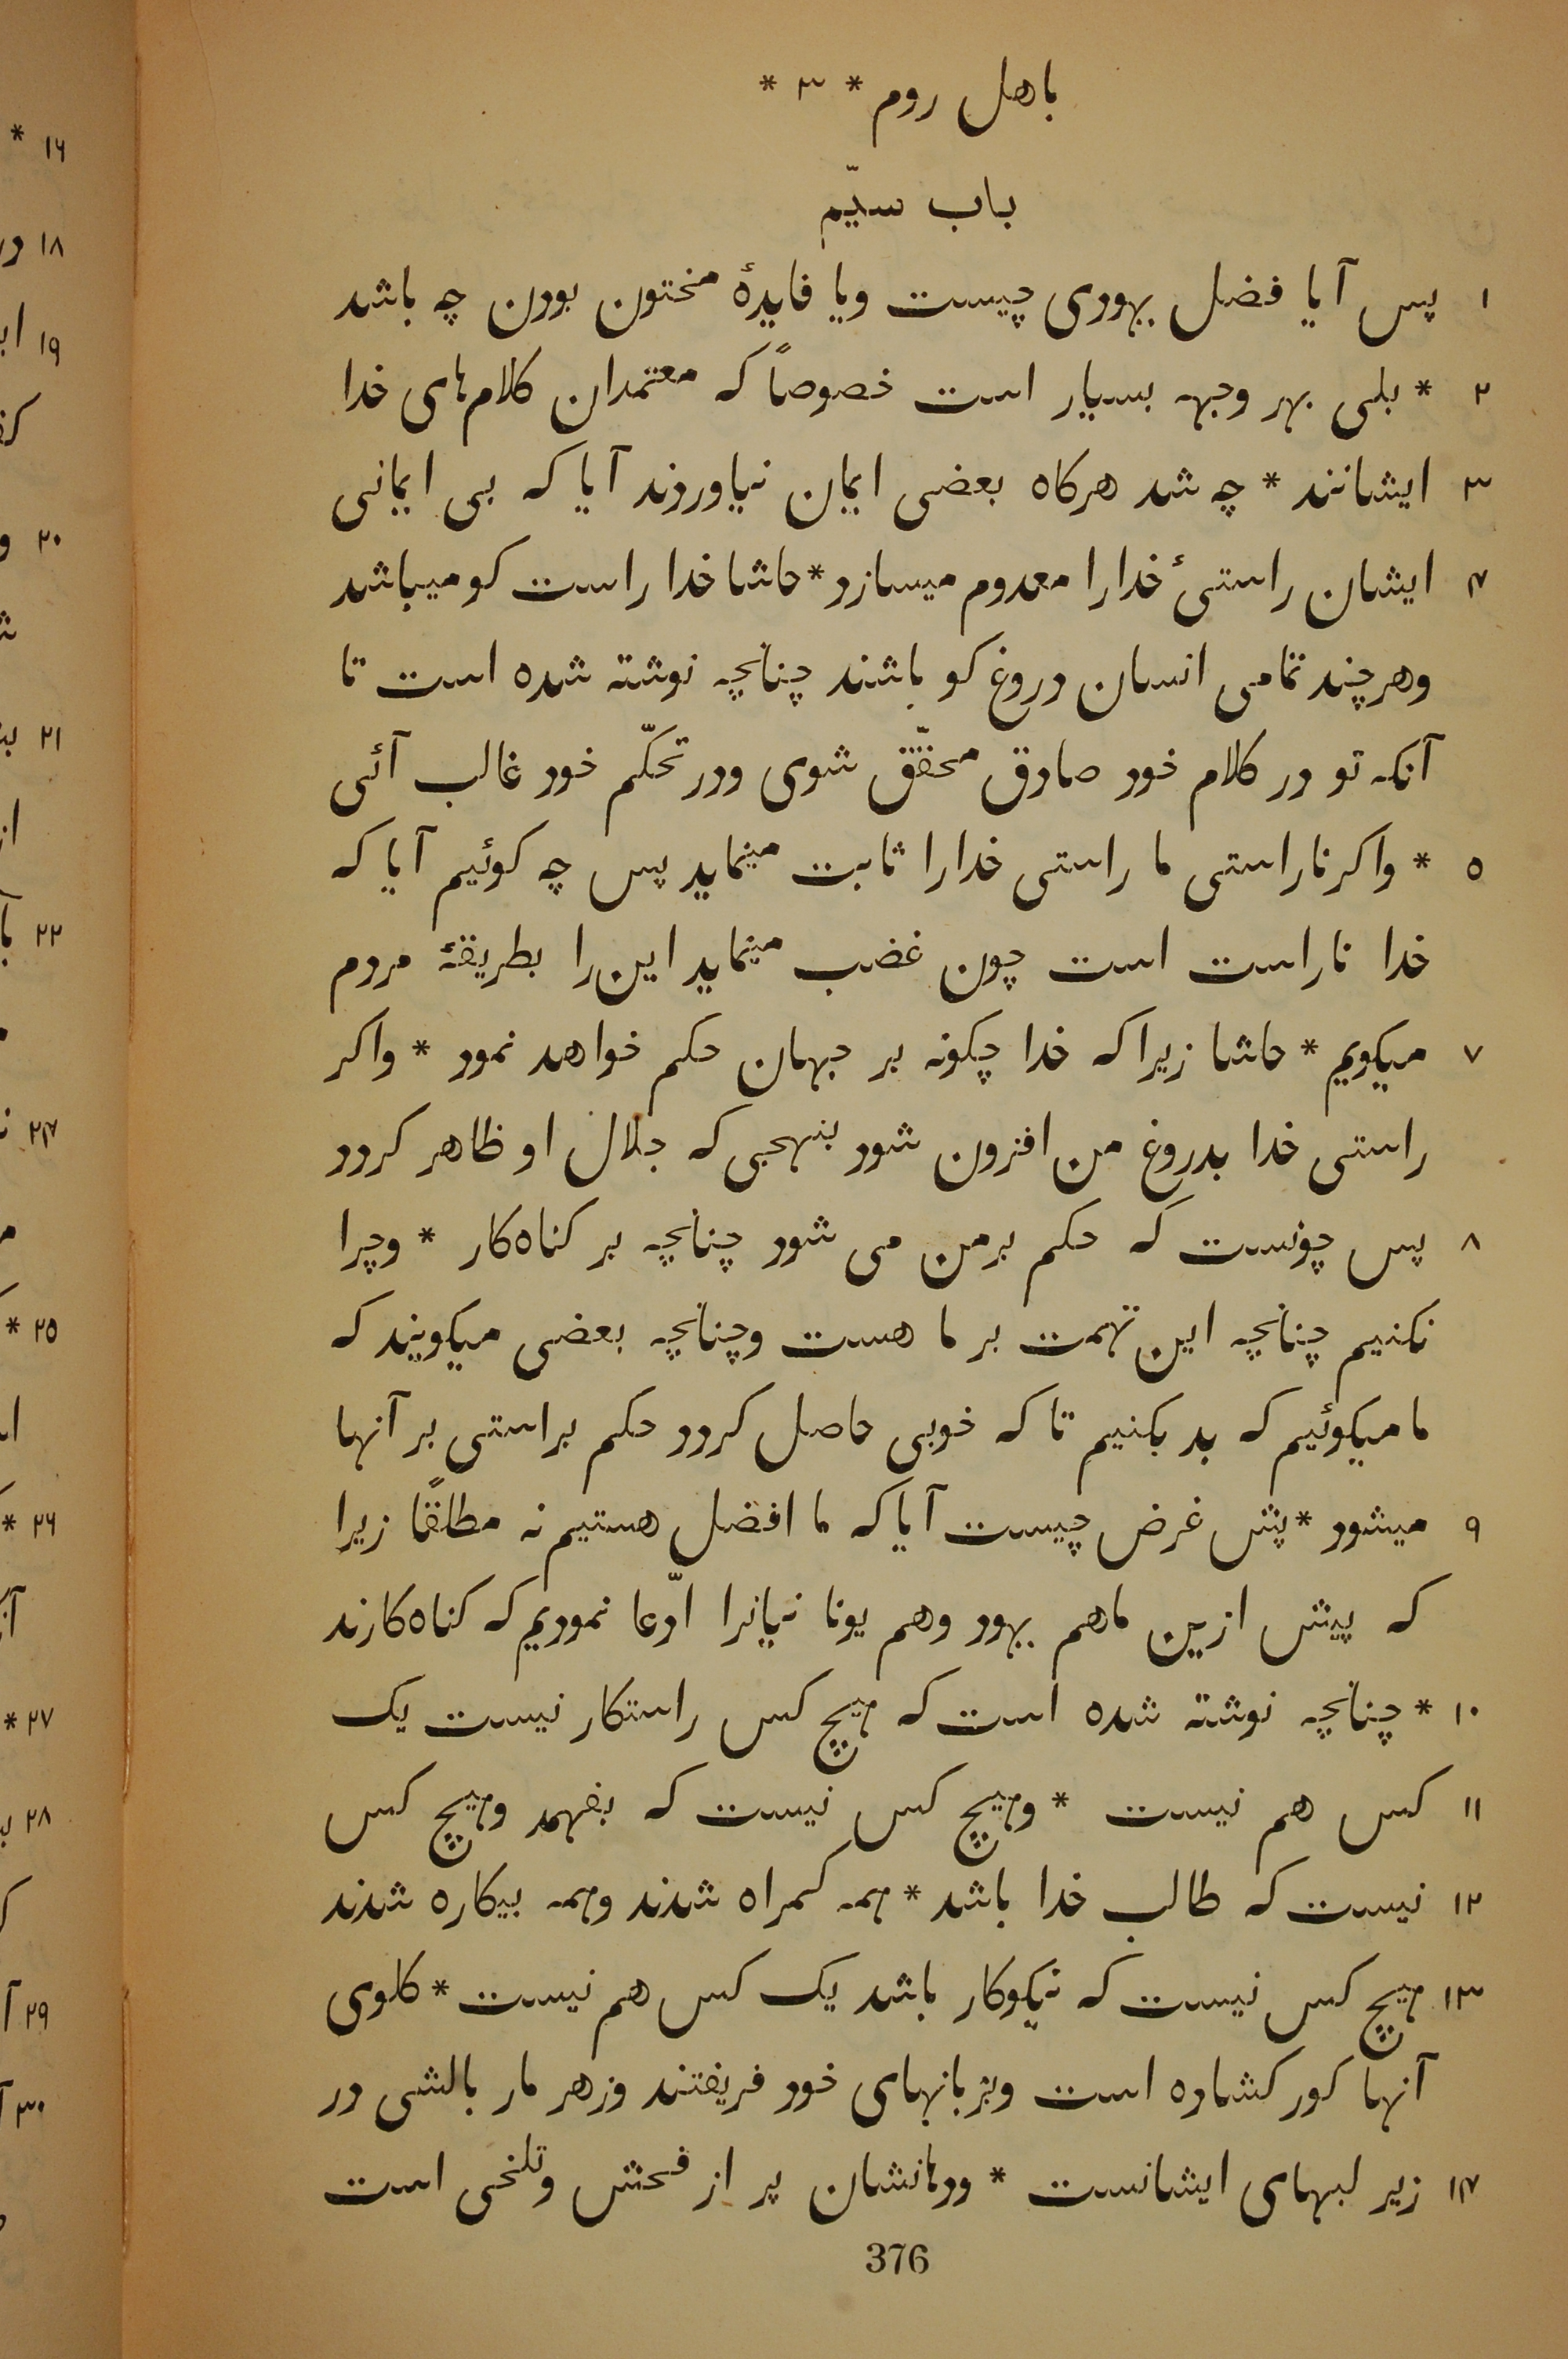 باهل روم * ۳ *
باب سیّم
۱ پس آیا فضل یهودی چیست ویا فایدهٔ مختون بودن چه باشد
۲ * بلی بهر وجهه بسیار است خصوصاً که معتمدان کلام‌های خدا
۳ ایشانند * چه شد هرکاه بعضی ایمان نیاوردند آیا که بی ایمانی
۴ ایشان راستیٔ خدارا معدوم میسازد * حاشا خدا راست کو میباشد
وهرچند تمامی انسان دروغ کو باشند چنانچه نوشته شده است تا
آنکه تو در کلام خود صادق محقّق شوی ودر تحکّم خود غالب آئی
۵ * واکر ناراستی ما راستی خدارا ثابت مینماید پس چه کوئیم آیا که
خدا ناراست است چون غضب مینماید این را بطریقهٔ مردم
۷ میکویم * حاشا زیرا که خدا چکونه بر جهان حکم خواهد نمود * واکر
راستی خدا بدروغ من افزون شود بنهجی که جلال او ظاهر کردد
۸ پس چونست که حکم برمن می شود چنانچه بر کناه‌کار * وچرا
نکنیم چنانچه این تهمت بر ما هست وچنانچه بعضی میکویند که
ما میکوئیم که بد بکنیم تا که خوبی حاصل کردد حکم براستی بر آنها
۹ میشود * پش غرض چیست آیا که ما افضل هستیم نه مطلقًا زیرا
که پیش ازین ماهم یهود وهم یونا نیانرا ادّعا نمودیم که کناه‌کارند
۱۰ * چنانچه نوشته شده است که هیچ کس راستکار نیست یک
۱۱ کس هم نیست * وهیچ کس نیست که بفهمد وهیچ کس
۱۲ نیست که طالب خدا باشد * همه کمراه شدند وهمه بیکاره شدند
۱۳ هیچ کس نیست که نیکوکار باشد یک کس هم نیست * کلوی
آنها کور کشاده است وبزبانهای خود فریفتند وزهر مار بالشی در
۱۴ زیر لبهای ایشانست * ودهانشان پر از فحش وتلخی است
376
۱۶ *
۱۸
۱۹
۲۰ و
۲۱
۲۲
۲۴
۲۵ *
۲۶ *
۲۷ *
۲۸
۲۹
۳۰